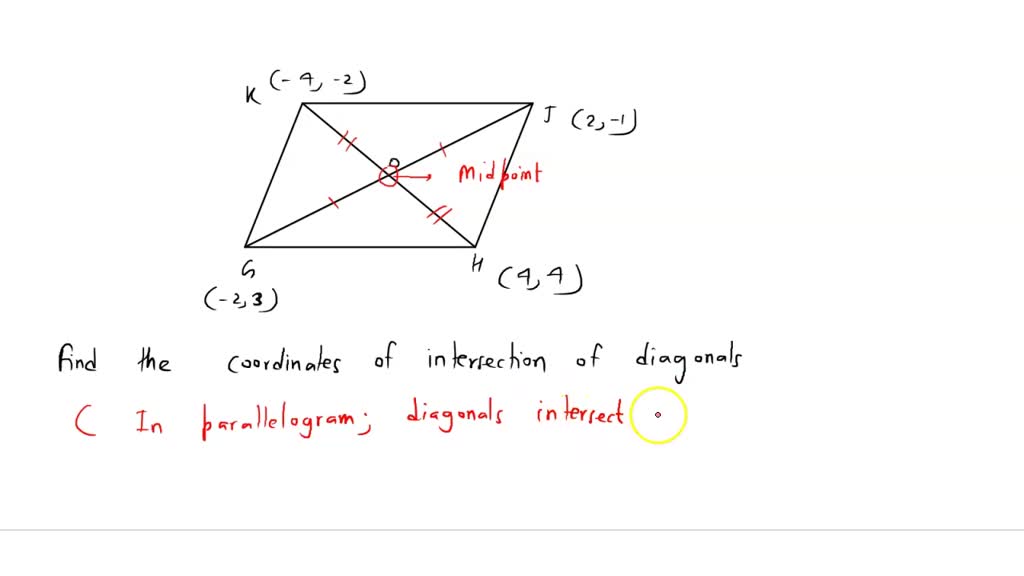 K (-4, -2)
J (2, -1)
O
Midpoint
G
(-2, 3)
H (4, 4)
find the coordinates of intersection of diagonals
( In parallelogram; diagonals intersect